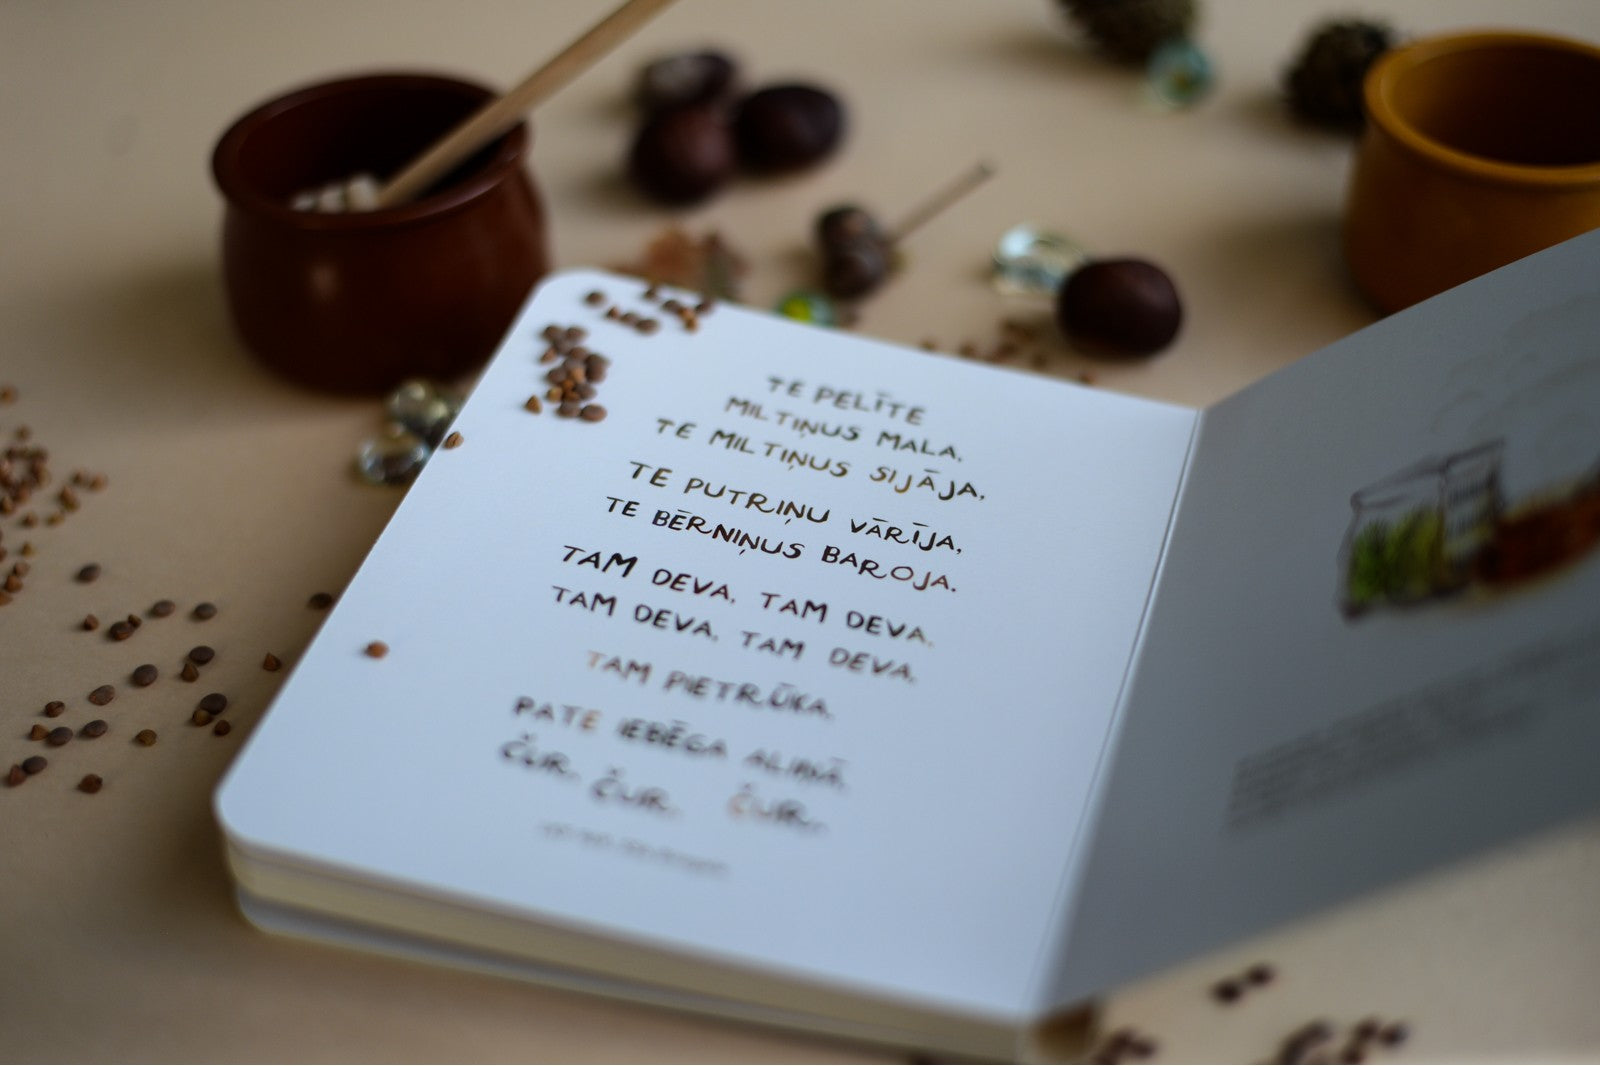 TE PELĪTE
MILTIŅUS MALA,
TE MILTIŅUS SIJĀJA,
TE PUTRIŅU VĀRĪJA,
TE BĒRNIŅUS BAROJA.
TAM DEVA, TAM DEVA,
TAM DEVA, TAM DEVA,
TAM PIETRŪKA,
PATE IEBĒGA ALIŅĀ,
ČUR, ČUR, ČUR.